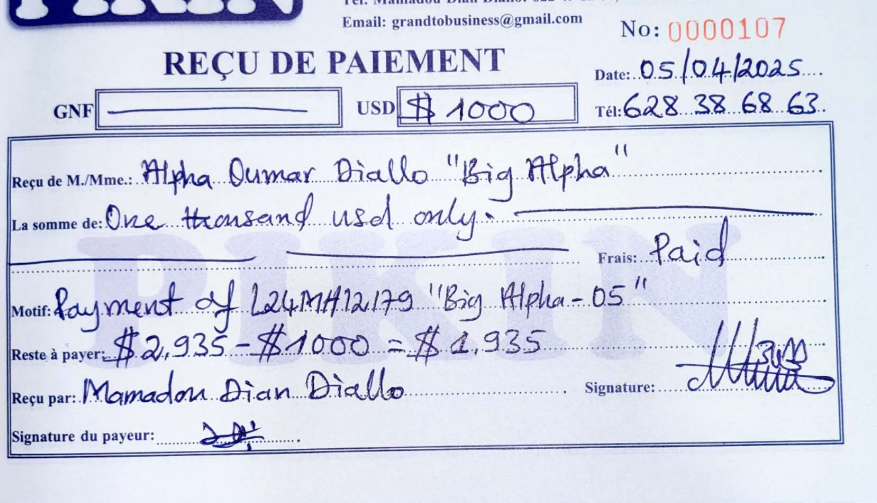 PIKIN
Email: grandtobusiness@gmail.com
No: 0000107
REÇU DE PAIEMENT
Date: 05/04/2025
GNF
USD $ 1000
Tél: 628 38 68 63
Reçu de M./Mme.: Alpha Oumar Diallo "Big Alpha"
La somme de: One thousand usd only.
Frais: Paid
Motif: Payment of L24MH12179 "Big Alpha-05"
Reste à payer: $2,935 - $1000 = $1,935
Reçu par: Mamadou Dian Diallo
Signature:
Signature du payeur:
PIKIN